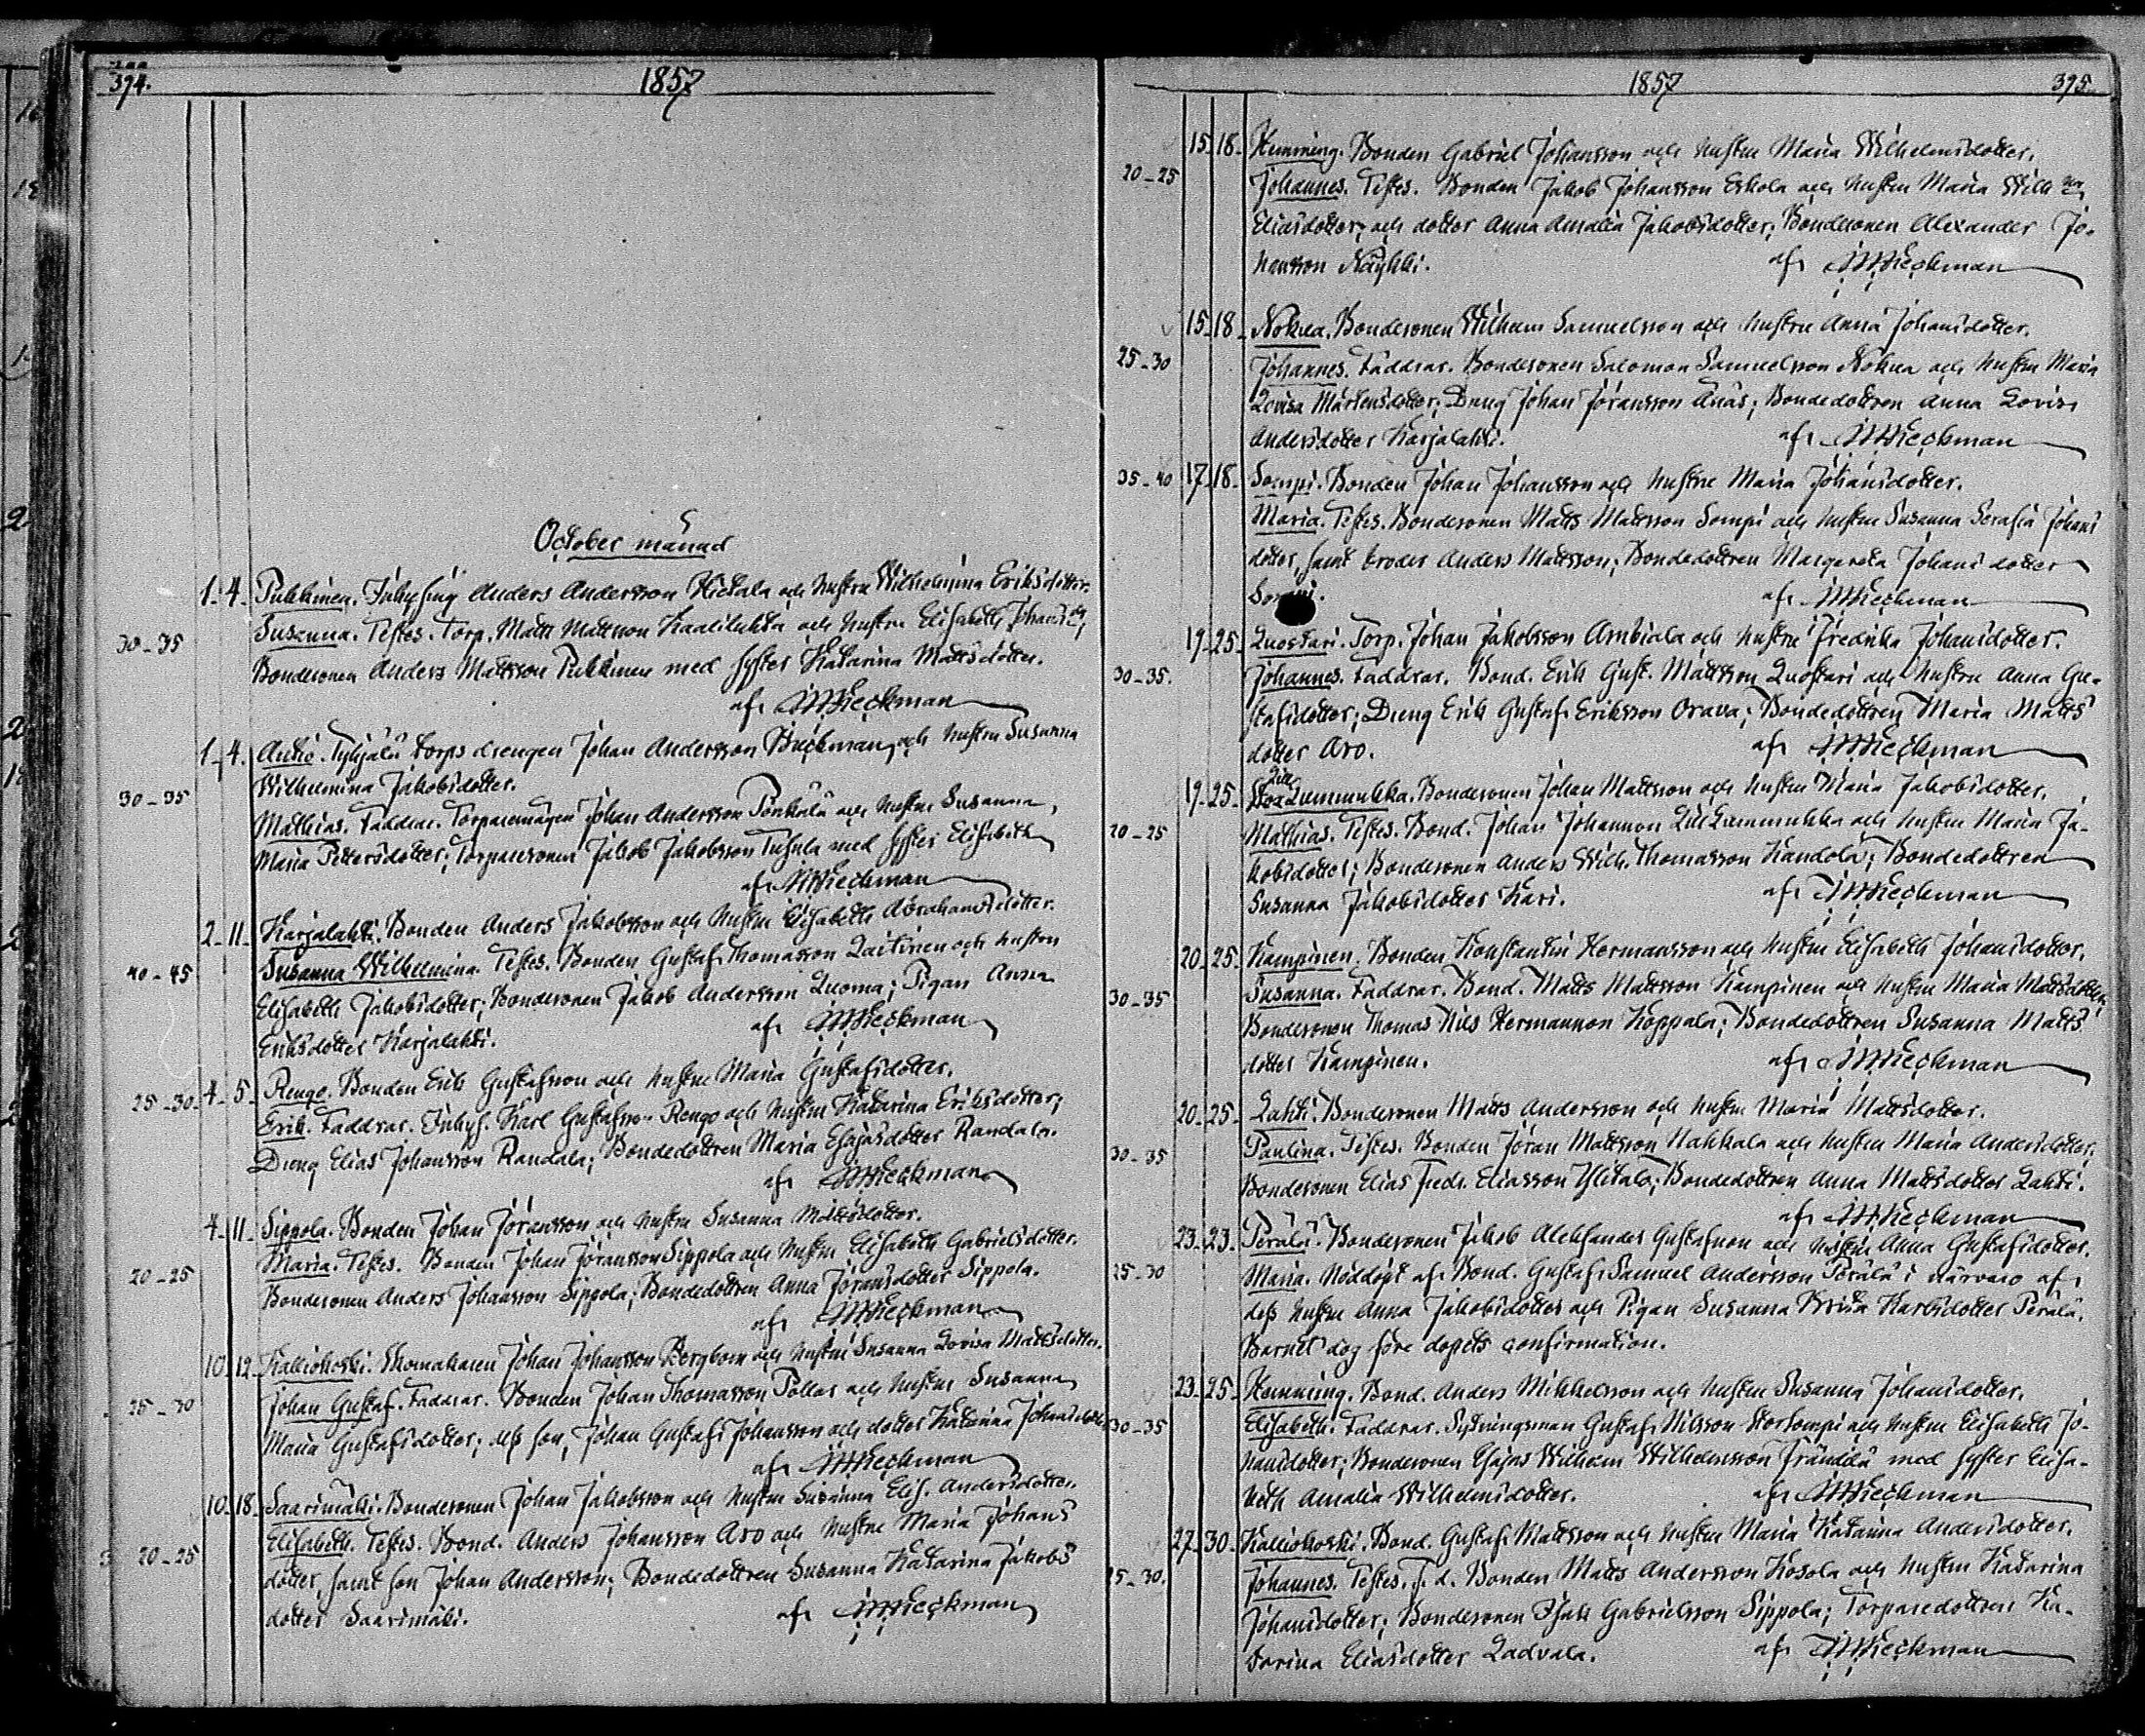 394.
1857
October månad
1. 4. Pukkinen. Inhysing Anders Andersson Hietala och hustru Wilhelmina Eriksdotter.
30-35 Susanna. Testes. Torp. Matts Mattsson Kaalilukta och hustru Elisabeth Johansd:r,
Bondesonen Anders Mattsson Pukkinen med syster Katarina Mattsdotter.
af JMWieckman
1. 4. Autio. Torpsdrengen Johan Andersson och hustru Susanna
Wilhelmina Jakobsdotter.
30-35 Mathias. Faddrar. Torparemågen Johan Andersson Pänkälä och hustru Susanna
Maria Pettersdotter; Torparesonen Jakob Jakobsson med syster Elisabeth
af JMWieckman
2. 11. Karjalahti. Bonden Anders Jakobsson och hustru Elisabeth Abrahamsdotter.
40-45 Susanna Wilhelmina. Testes. Bonden Gustaf Thomasson Laitinen och hustru
Elisabeth Jakobsdotter; Bondesonen Jakob Andersson Luoma; Pigan Anna
Eriksdotter Karjalahti. af JMWieckman
25-30 4. 5. Rengo. Bonden Erik Gustafsson och hustru Maria Gustafsdotter.
Erik. Faddrar. Inhys. Karl Gustafsson Rengo och hustru Katarina Eriksdotter;
Dreng Elias Johansson Randala; Bondedottren Maria Esajasdotter Randala.
af JMWieckman
4. 11. Sippola. Bonden Johan Jöransson och hustru Susanna Mattsdotter.
20-25 Maria. Testes. Bonden Johan Jöransson Sippola och hustru Elisabeth Gabrielsdotter.
Bondesonen Anders Johansson Sippola; Bondedottren Anna Jöransdotter Sippola.
af JMWieckman
10. 12. Kalliokoski. Skomakaren Johan Johansson Bergbom och hustru Susanna Lovisa Mattsdotter.
25-30 Johan Gustaf. Faddrar. Bonden Johan Thomasson Pollar och hustru Susanna
Maria Gustafsdotter; dess son, Johan Gustaf Johansson och dotter Katarina Johansdotter
af JMWieckman
10. 18. Saarimäki. Bondesonen Johan Jakobsson och hustru Susanna Elis. Andersdotter.
20-25 Elisabeth. Testes. Bond. Anders Johansson Aro och hustru Maria Johans
dotter, samt son Johan Andersson; Bondedottren Susanna Katarina Jakobs
dotter Saarimäki. af JMWieckman
1857
395.
15. 18. Hemming. Bonden Gabriel Johansson och hustru Maria Wilhelmsdotter.
20-25 Johannes. Testes. Bonden Jakob Johansson Eskola och hustru Maria Wilh:na
Eliasdotter; och dotter Anna Amalia Jakobsdotter; Bondesonen Alexander Jo-
hansson Näykki. af JMWieckman
15. 18. Nokua. Bondesonen Wilhelm Samuelsson och hustru Anna Johansdotter.
25-30 Johannes. Faddrar. Bondesonen Salomon Samuelsson Nokua och hustru Maria
Lovisa Mårtensdotter; Dreng Johan Jöransson Anäs; Bondedottren Anna Lovisa
Andersdotter Karjalahti. af JMWieckman
35-40 17. 18. Sompi. Bonden Johan Johansson och hustru Maria Johansdotter.
Maria. Testes. Bondesonen Matts Mattsson Sompi och hustru Susanna Serafia Johans
dotter, samt broder Anders Mattsson; Bondedottren Margareta Johans dotter
Sompi. af JMWieckman
19. 25. Luostari. Torp. Johan Jakobsson Ambiala och hustru Fredrika Johansdotter.
30-35. Johannes. Faddrar. Bond. Erik Gust. Mattsson Luostari och hustru Anna Gu-
stafsdotter; Dreng Erik Gustaf Eriksson Orava; Bondedottren Maria Matts
dotter Aro. af JMWieckman
19. 25. Lill Lummukka. Bondesonen Johan Mattsson och hustru Maria Jakobsdotter.
20-25 Mathias. Testes. Bond. Johan Johansson Lill Lummukka och hustru Maria Ja-
kobsdotter; Bondesonen Anders Wilh. Thomasson Kandola; Bondedottren
Susanna Jakobsdotter Kari. af JMWieckman
20. 25. Kampinen. Bonden Konstantin Hermansson och hustru Elisabeth Johansdotter.
30-35 Susanna. Faddrar. Bond. Matts Mattsson Kampinen och hustru Maria Mattsdotter;
Bondesonen Thomas Nils Hermansson Koppala; Bondedottren Susanna Matts
dotter Kampinen. af JMWieckman
20. 25. Lahti. Bondesonen Matts Andersson och hustru Maria Mattsdotter.
30-35 Paulina. Testes. Bonden Jöran Mattsson Hahkala och hustru Maria Andersdotter;
Bondesonen Elias Fredr. Eliasson Ylitalo; Bondedottren Anna Mattsdotter Lahti.
af JMWieckman
23. 23. Perälä. Bondesonen Jakob Aleksander Gustafsson och hustru Anna Gustafsdotter.
25-30 Maria. Nöddöpt af Bond. Gustaf Samuel Andersson Perälä i närvaro af
dess hustru Anna Jakobsdotter och Pigan Susanna Brita Karlsdotter Perälä.
Barnet dog före dopets confirmation.
23. 25. Hemming. Bond. Anders Mikkelsson och hustru Susanna Johansdotter.
30-35 Elisabeth. Faddrar. Sexningsman Gustaf Nilsson Storsompi och hustru Elisabeth Jo-
hansdotter; Bondesonen Esajas Wilhelm Wilhelmsson Frändilä med syster Elisa-
beth Amalia Wilhelmsdotter. af JMWieckman
27. 30. Kalliokoski. Bond. Gustaf Mattsson och hustru Maria Katarina Andersdotter.
25-30. Johannes. Testes. F. d. Bonden Matts Andersson Kosola och hustru Katarina
Johansdotter; Bondesonen Isak Gabrielsson Sippola; Torparedottren Ka-
tarina Eliasdotter Ladvala. af JMWieckman